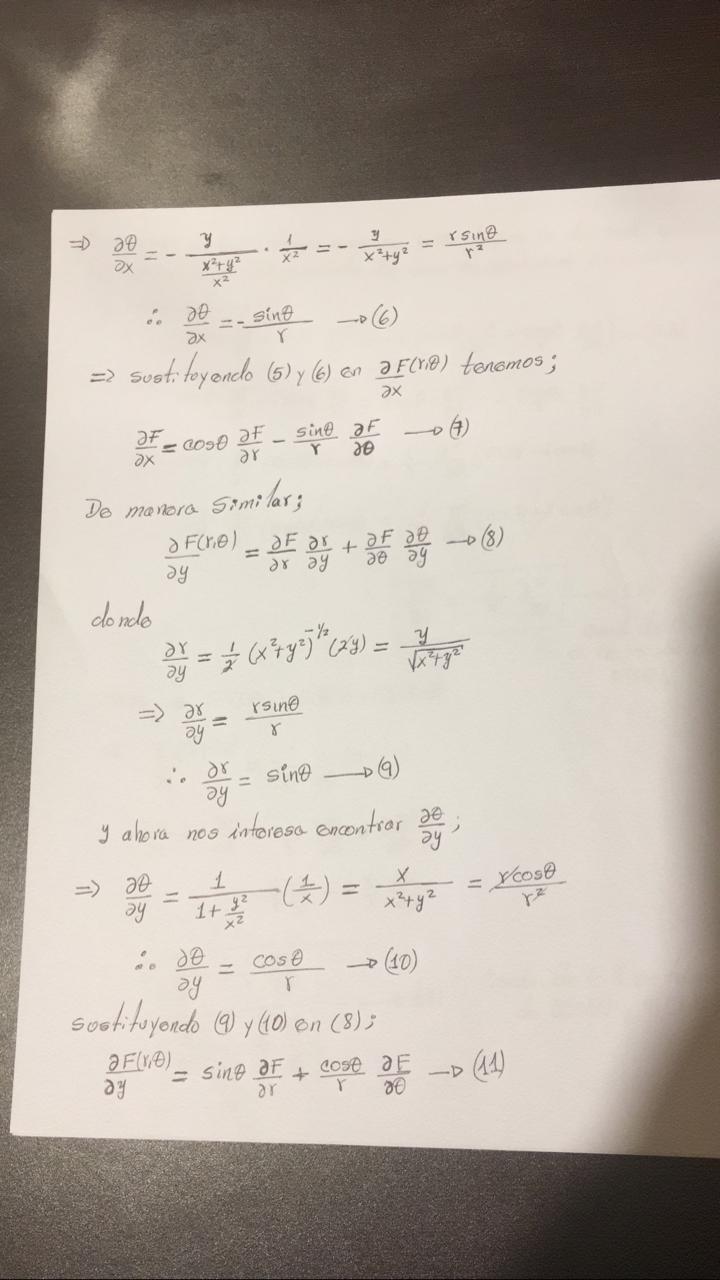 ⇒ ∂θ/∂x = - y/((x²+y²)/x²) · 1/x² = - y/(x²+y²) = r sinθ/r²
∴ ∂θ/∂x = - sinθ/r → (6)
⇒ sustituyendo (5) y (6) en ∂F(r,θ)/∂x tenemos;
∂F/∂x = cosθ ∂F/∂r - sinθ/r ∂F/∂θ → (7)
De manera similar;
∂F(r,θ)/∂y = ∂F/∂r ∂r/∂y + ∂F/∂θ ∂θ/∂y → (8)
donde
∂r/∂y = 1/2 (x²+y²)^(-1/2) (2y) = y/√(x²+y²)
⇒ ∂r/∂y = r sinθ/r
∴ ∂r/∂y = sinθ → (9)
y ahora nos interesa encontrar ∂θ/∂y;
⇒ ∂θ/∂y = 1/(1 + y²/x²) (1/x) = x/(x²+y²) = r cosθ/r²
∴ ∂θ/∂y = cosθ/r → (10)
sustituyendo (9) y (10) en (8);
∂F(r,θ)/∂y = sinθ ∂F/∂r + cosθ/r ∂F/∂θ → (11)